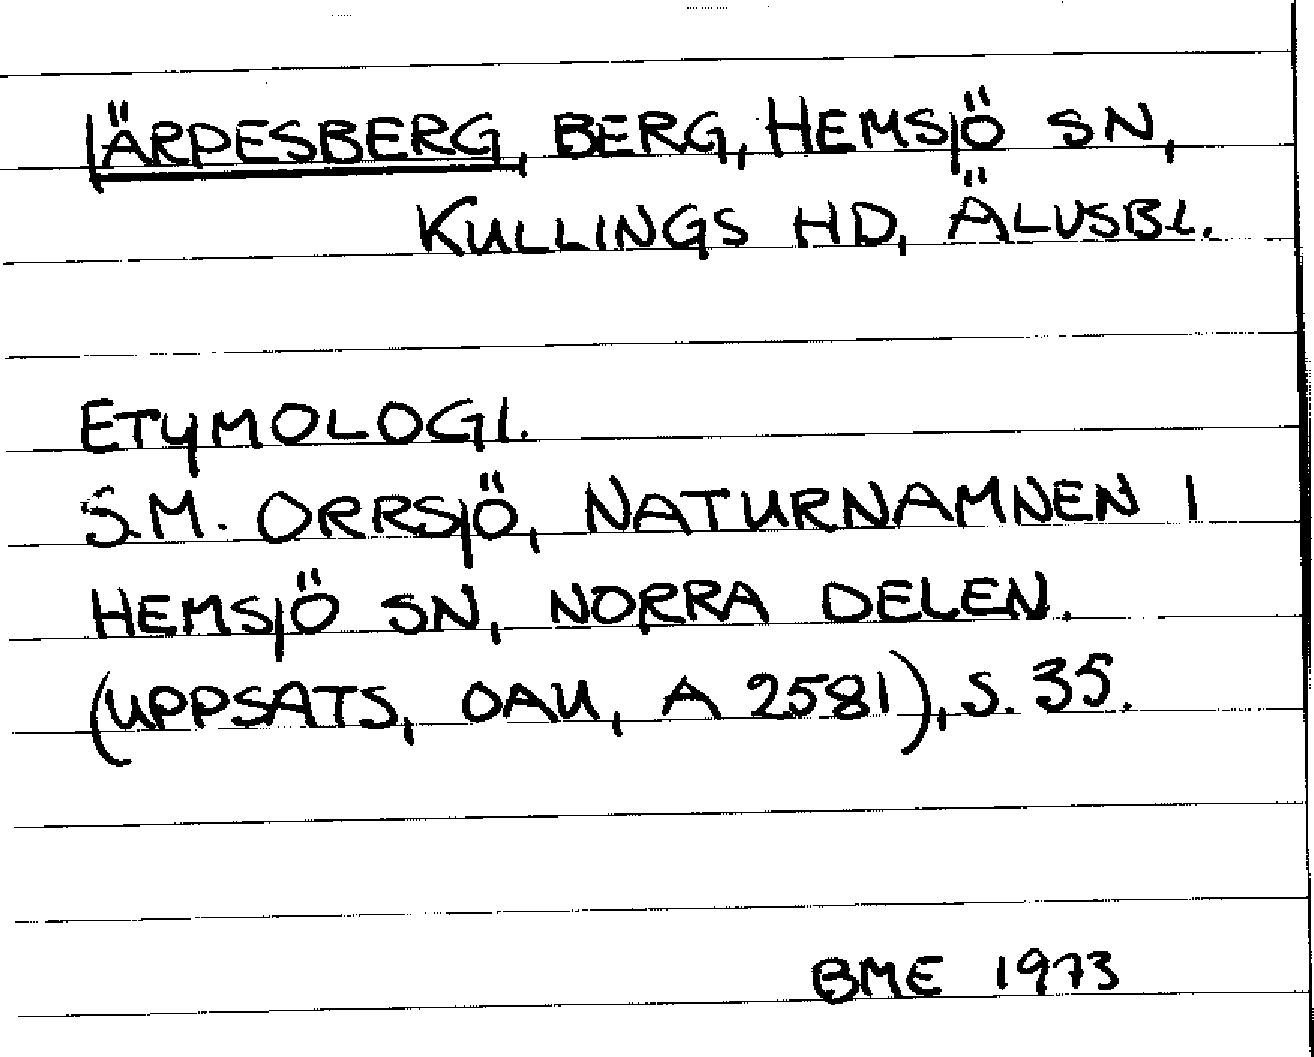 JÄRPESBERG, BERG, HEMSJÖ SN,
KULLINGS HD, ÄLVSBL.
ETYMOLOGI.
S.M. ORRSJÖ, NATURNAMNEN I
HEMSJÖ SN, NORRA DELEN.
(UPPSATS, OAU, A 2581), S. 35.
BME 1973